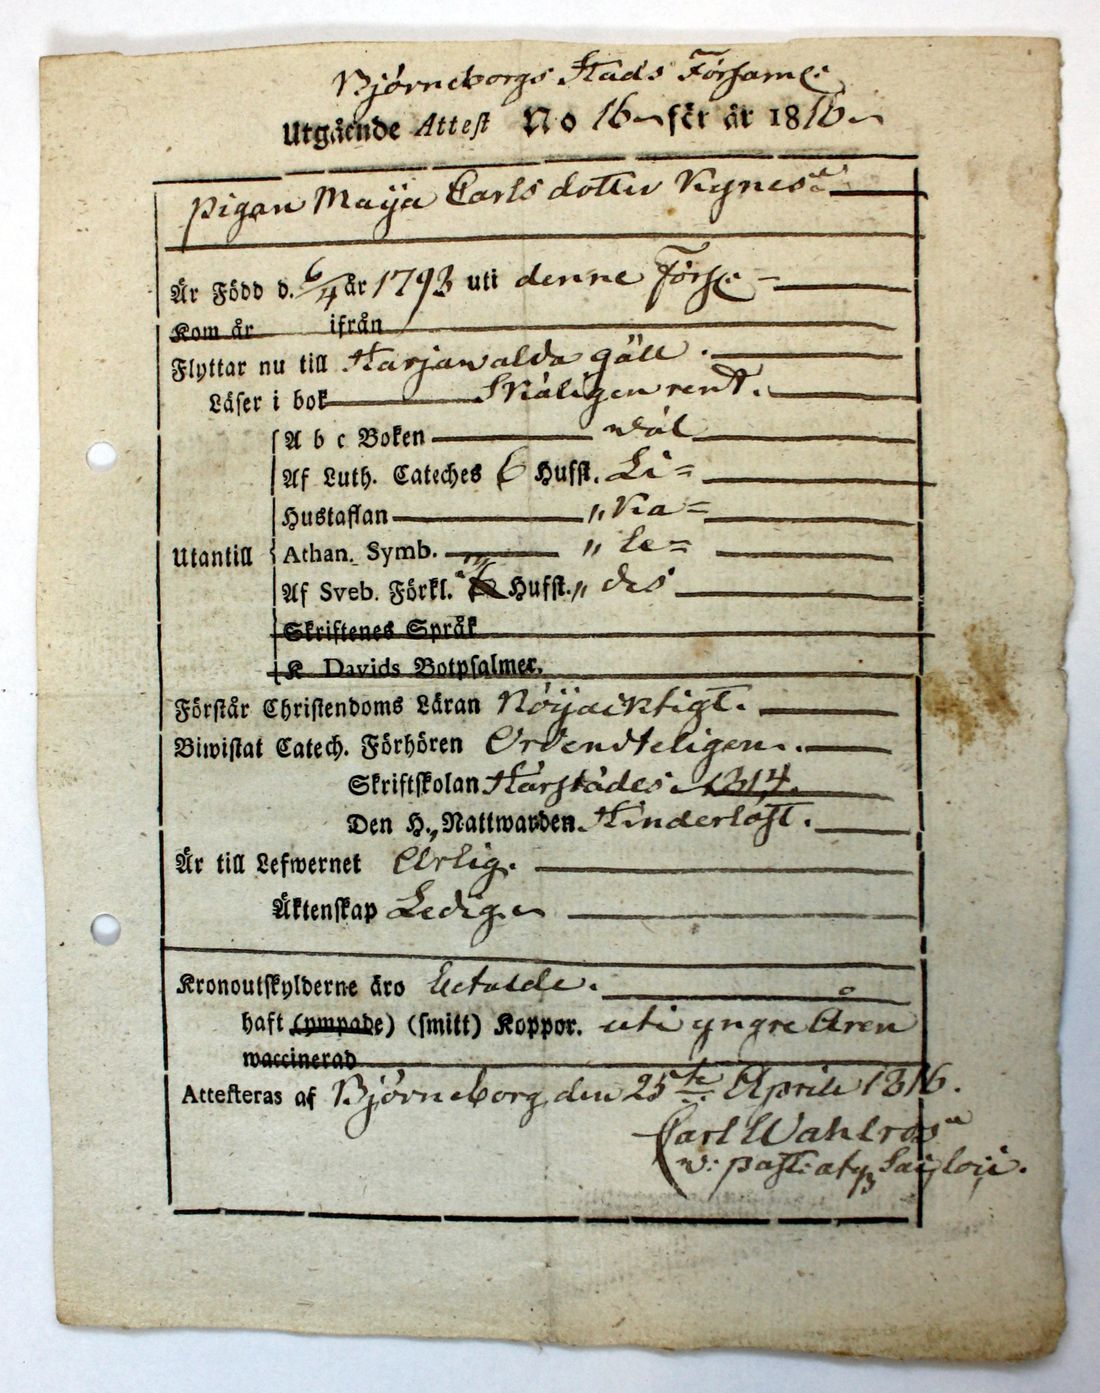 Björneborgs Stads Församl:
Utgående Attest No 16 för år 1816
Pigan Maija Carlsdotter
Är Född d. 6/4 år 1793 uti denne Förs:
Kom år ifrån
Flyttar nu till Harjawalda gäll.
Läser i bok Skäligen rent.
A b c Boken wäl
Af Luth. Cateches 6 Hufst. Li=
Hustaflan " ka=
Utantill Athan. Symb. " le=
Af Sveb. Förkl. Hufst. " des
Skriftenes Språk
K Davids Botpsalmer.
Förstår Christendoms Läran Nöijacktigt.
Biwistat Catech. Förhören Ordendteligen.
Skriftskolan Härstädes 1814.
Den H. Nattwarden Hinderlöst.
Är till Lefwernet Ärlig.
Äktenskap Ledig
Kronoutskylderne äro betalde.
haft (ympade) (smitt) Koppor. uti yngre Åren
waccinerad
Attesteras af Björneborg den 25te Aprill 1816.
Carl Wahlroos